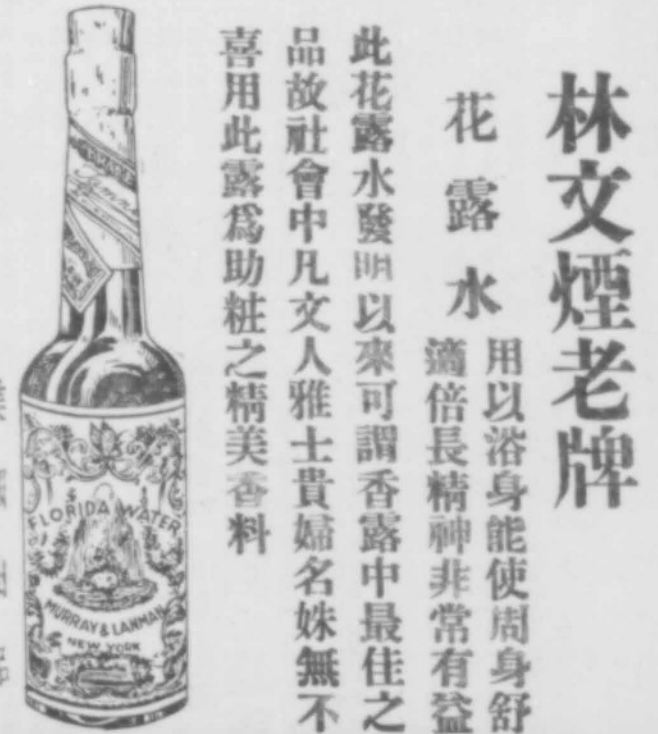 林文煙老牌
花露水
用以浴身能使周身舒
適倍長精神非常有益
此花露水發明以來可謂香露中最佳之
品故社會中凡文人雅士貴婦名姝無不
喜用此露爲助粧之精美香料
FLORIDA WATER
MURRAY & LANMAN
NEW YORK